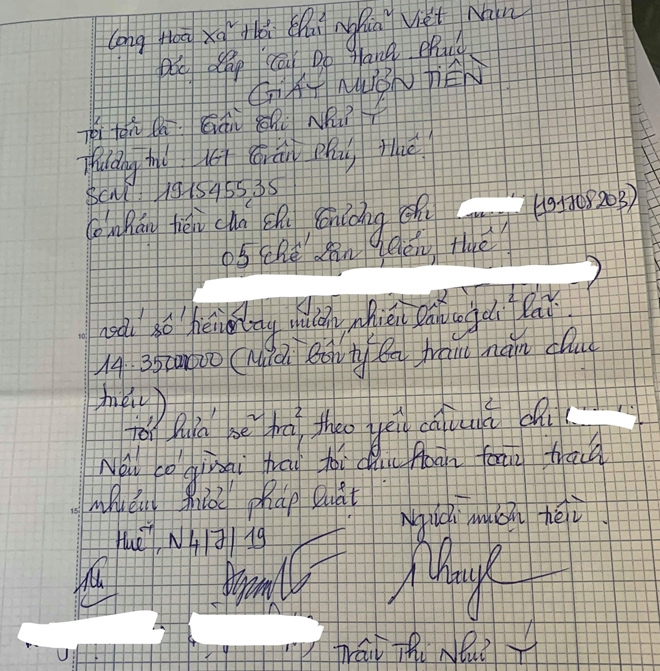 Cộng Hoà Xã Hội Chủ Nghĩa Việt Nam
Độc Lập Tự Do Hạnh Phúc
GIẤY MƯỢN TIỀN
Tôi tên là: Trần Thị Như Ý
Thường trú: 167 Trần Phú, Huế.
SCM: 191545535
Có nhận tiền của chị Trương Thị (191108203)
05 Chế Lan Viên, Huế.
với số tiền vay mượn nhiều lần cộng lại
14.350000000 (Mười bốn tỷ ba trăm năm chục
triệu)
Tôi hứa sẽ trả, theo yêu cầu của chị
Nếu có gì sai trái tôi chịu hoàn toàn trách
nhiệm trước pháp luật
Huế, N 4/7/19 Người mượn tiền.
Trần Thị Như Ý